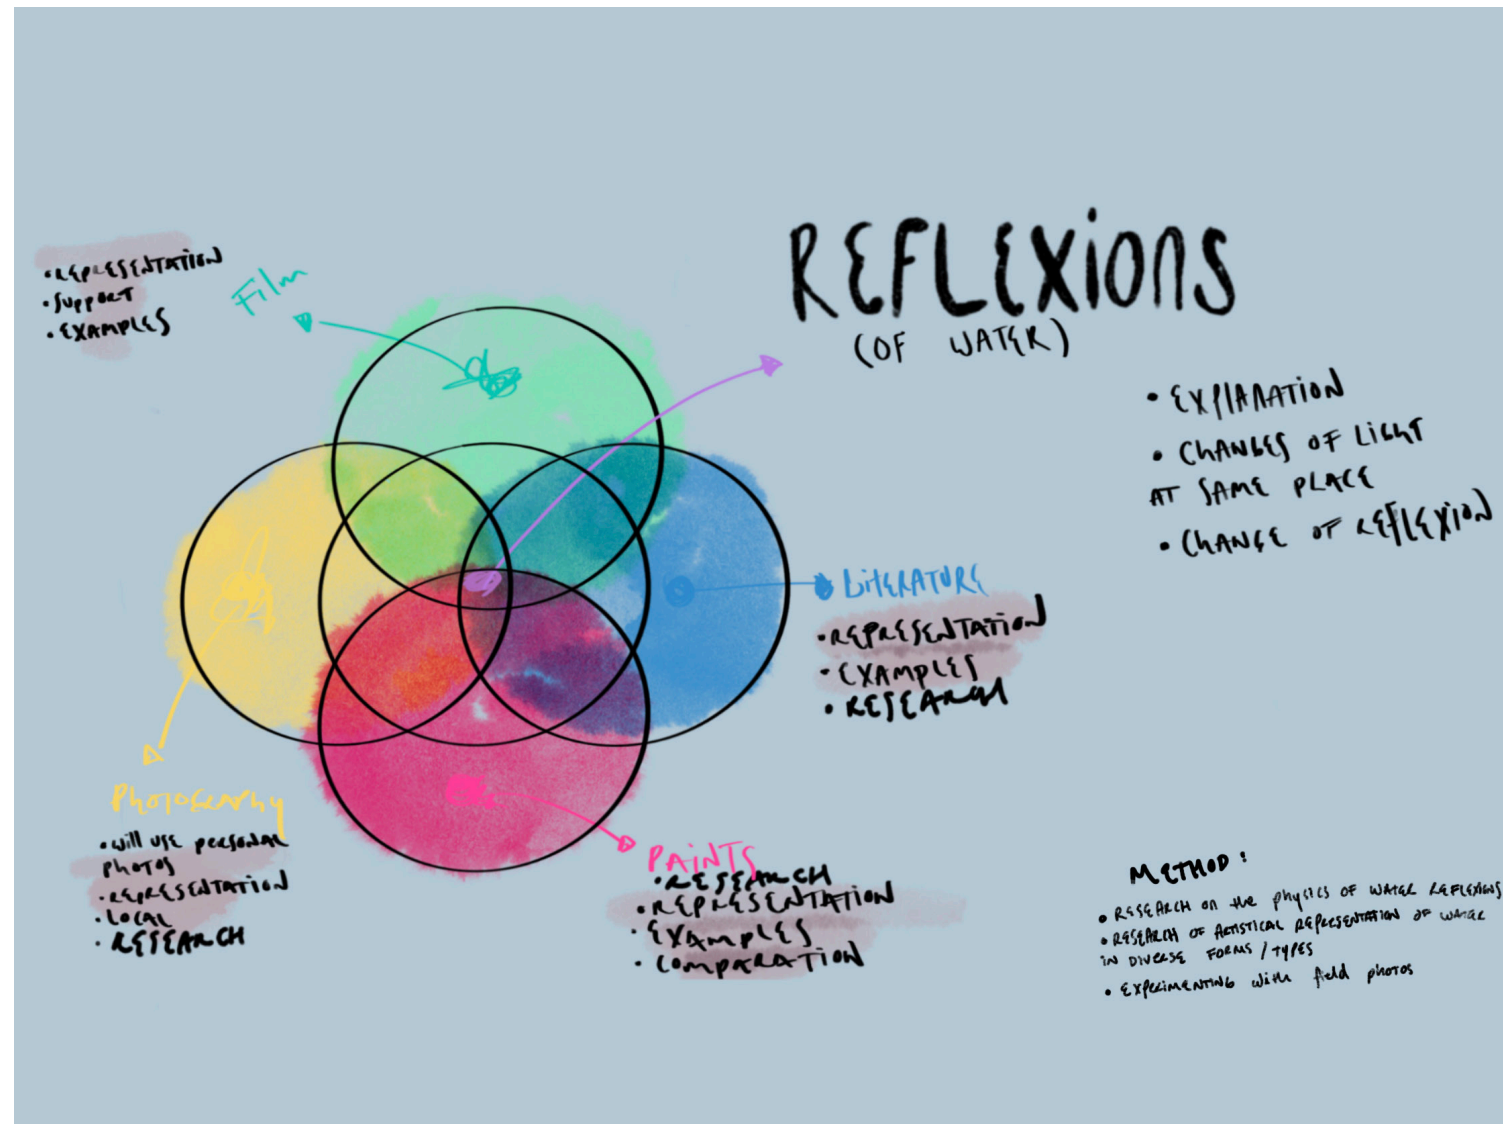 REFLEXIONS
(OF WATER)
• EXPLANATION
• CHANGES OF LIGHT
AT SAME PLACE
• CHANGE OF REFLEXION
Film
• REPRESENTATION
• SUPPORT
• EXAMPLES
LITERATURE
• REPRESENTATION
• EXAMPLES
• RESEARCH
Photography
• will use personal
photos
• REPRESENTATION
• LOCAL
• RESEARCH
PAINTS
• RESEARCH
• REPRESENTATION
• EXAMPLES
• COMPARATION
METHOD:
• RESEARCH on the physics OF WATER REFLEXIONS
• RESEARCH OF ARTISTICAL REPRESENTATION OF WATER
IN DIVERSE FORMS / TYPES
• EXPERIMENTING with field photos